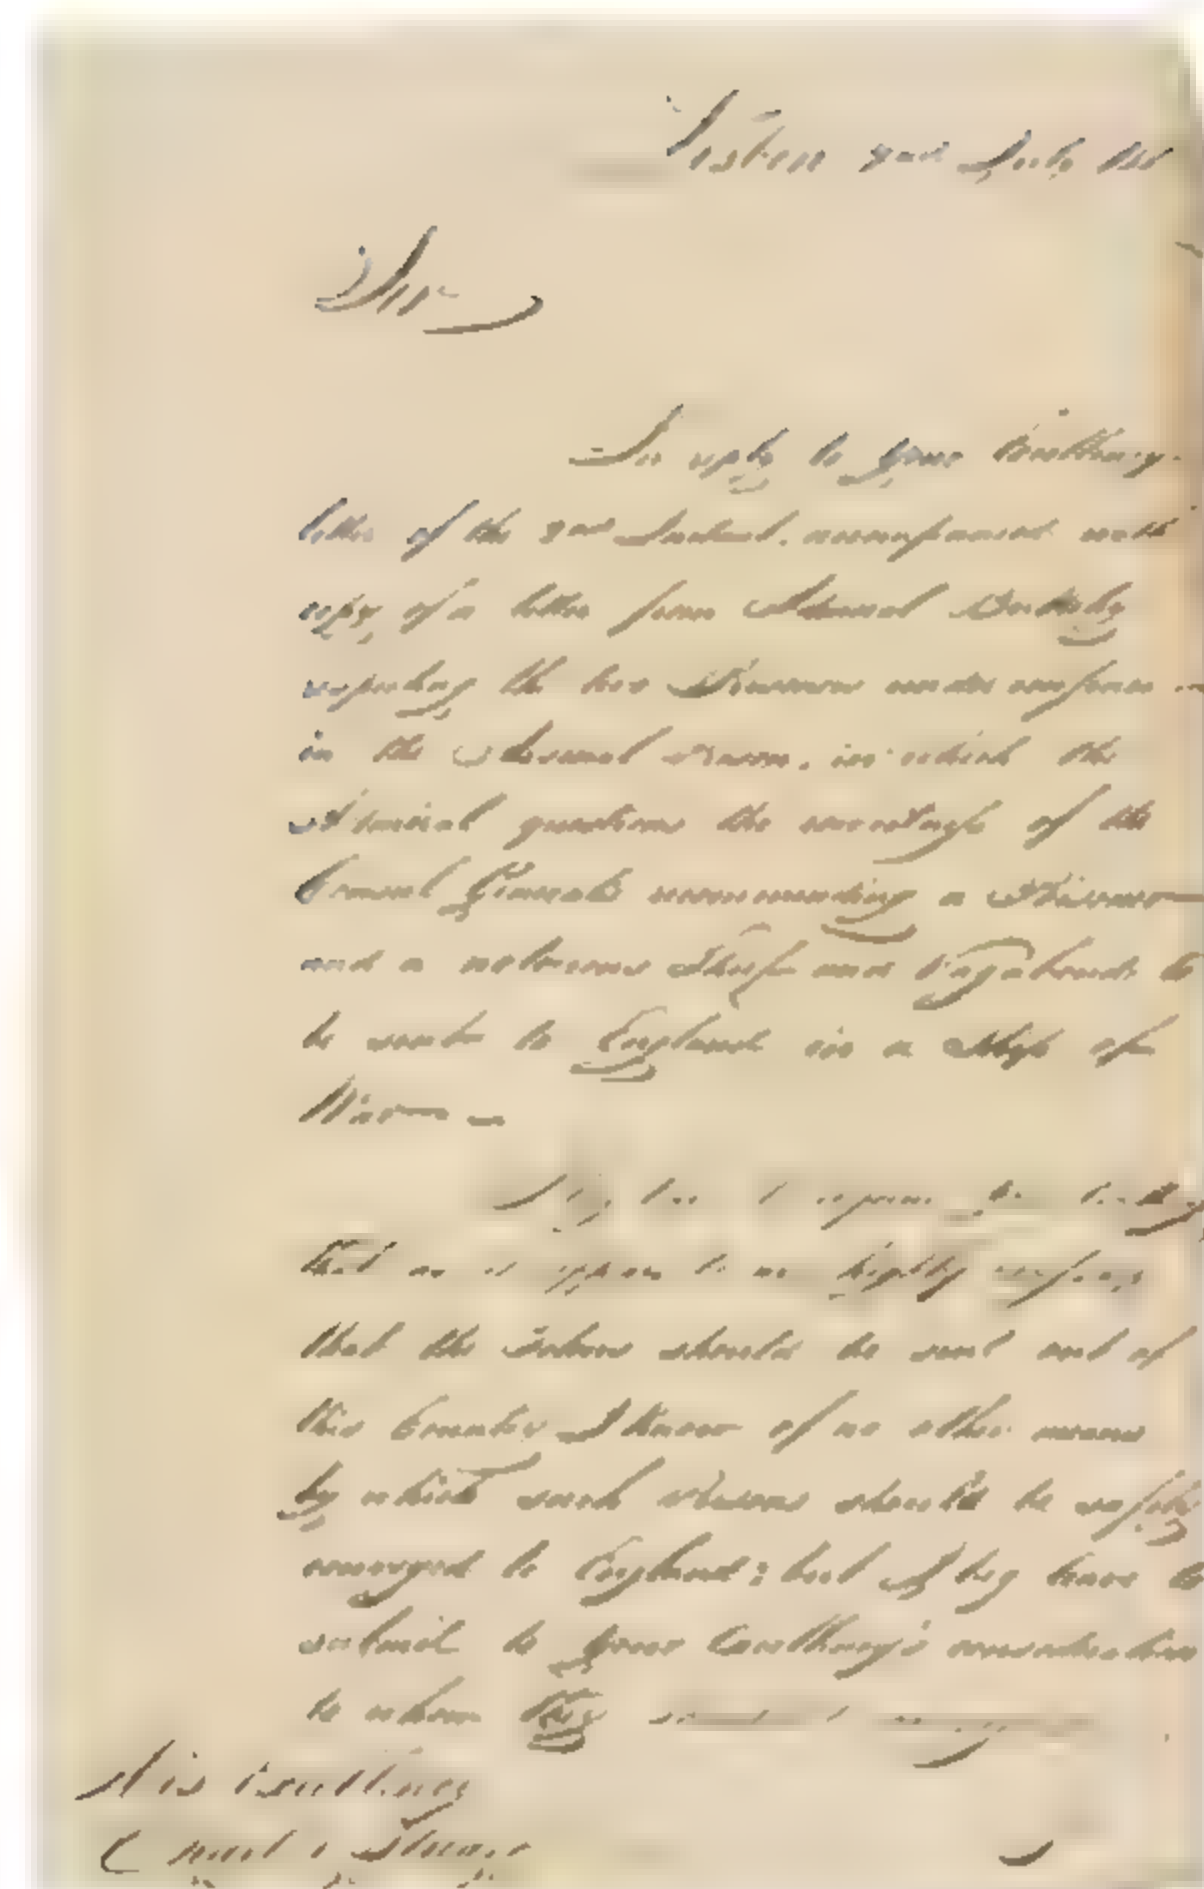 Lisbon 2nd July 181
Sir
In reply to your Excellency
letter of the 2nd Instant, accompanied with
copy of a letter from Admiral Berkeley
respecting the two Prisoners under
in the Arsenal Prison, in which the
Admiral questions the of the
Consul General's recommending a Prisoner
and a notorious Thief and Vagabond to
be sent to England in a Ship of
War
I beg leave to Excellency
that as it appears to me highly
that the should be sent out of
this Country I know of no other means
by which such persons should be safely
conveyed to England; but I beg leave to
submit to your Excellency's consideration
to whom they
His Excellency
Charles Stuart